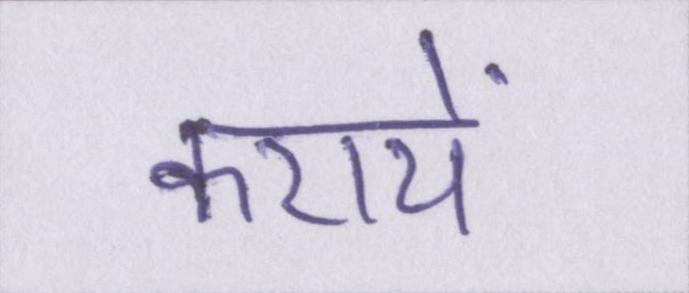 करायें